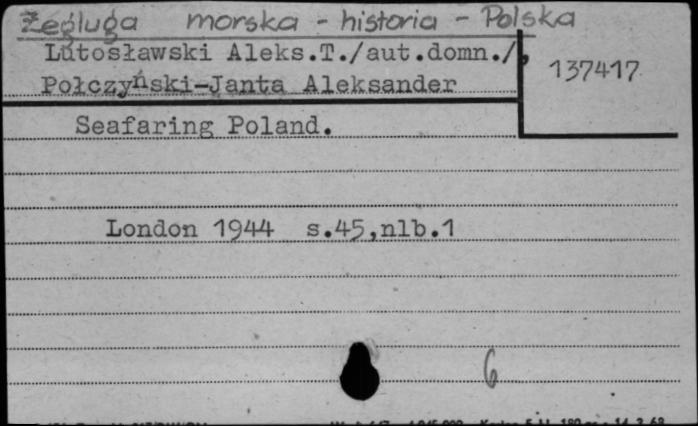 Żegluga morska - historia - Polska
Lutosławski Aleks.T./aut.domn./,
Połczyński-Janta Aleksander
137417
Seafaring Poland.
London 1944 s.45,nlb.1
6